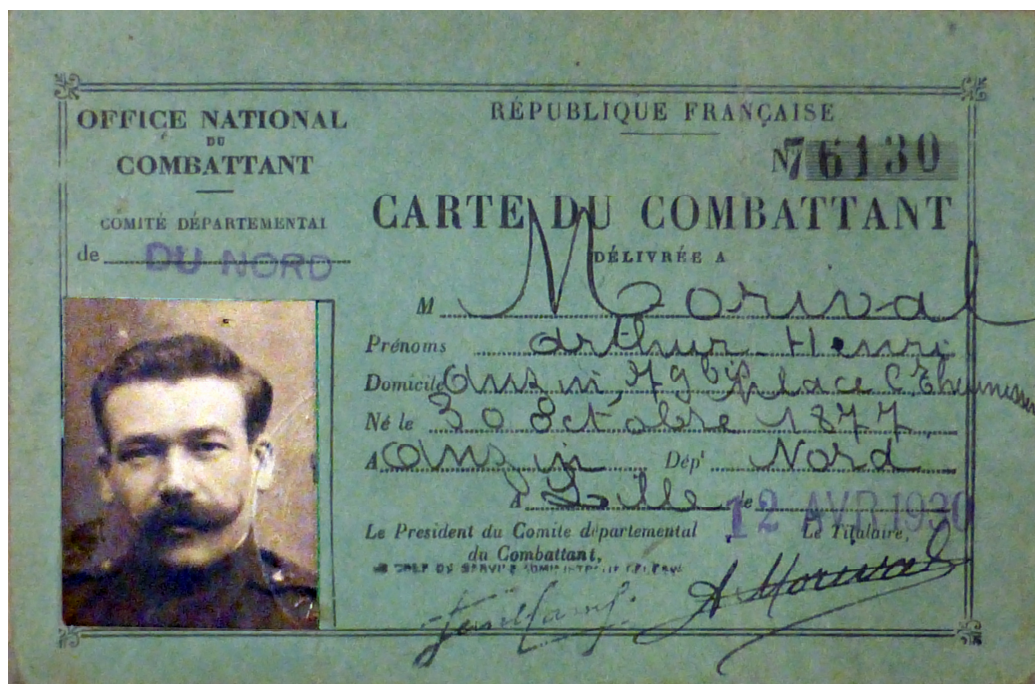 OFFICE NATIONAL
DU
COMBATTANT
COMITÉ DÉPARTEMENTAL
de DU NORD
RÉPUBLIQUE FRANÇAISE
N° 76130
CARTE DU COMBATTANT
DÉLIVRÉE A
M Morival
Prénoms Arthur Henri
Domicile Anzin, 79 bis place
Né le 30 Octobre 1877
A Anzin Dépt Nord
A Lille le 12 AVR 1930
Le President du Comite départemental
du Combattant,
Le Titulaire,
A Morival